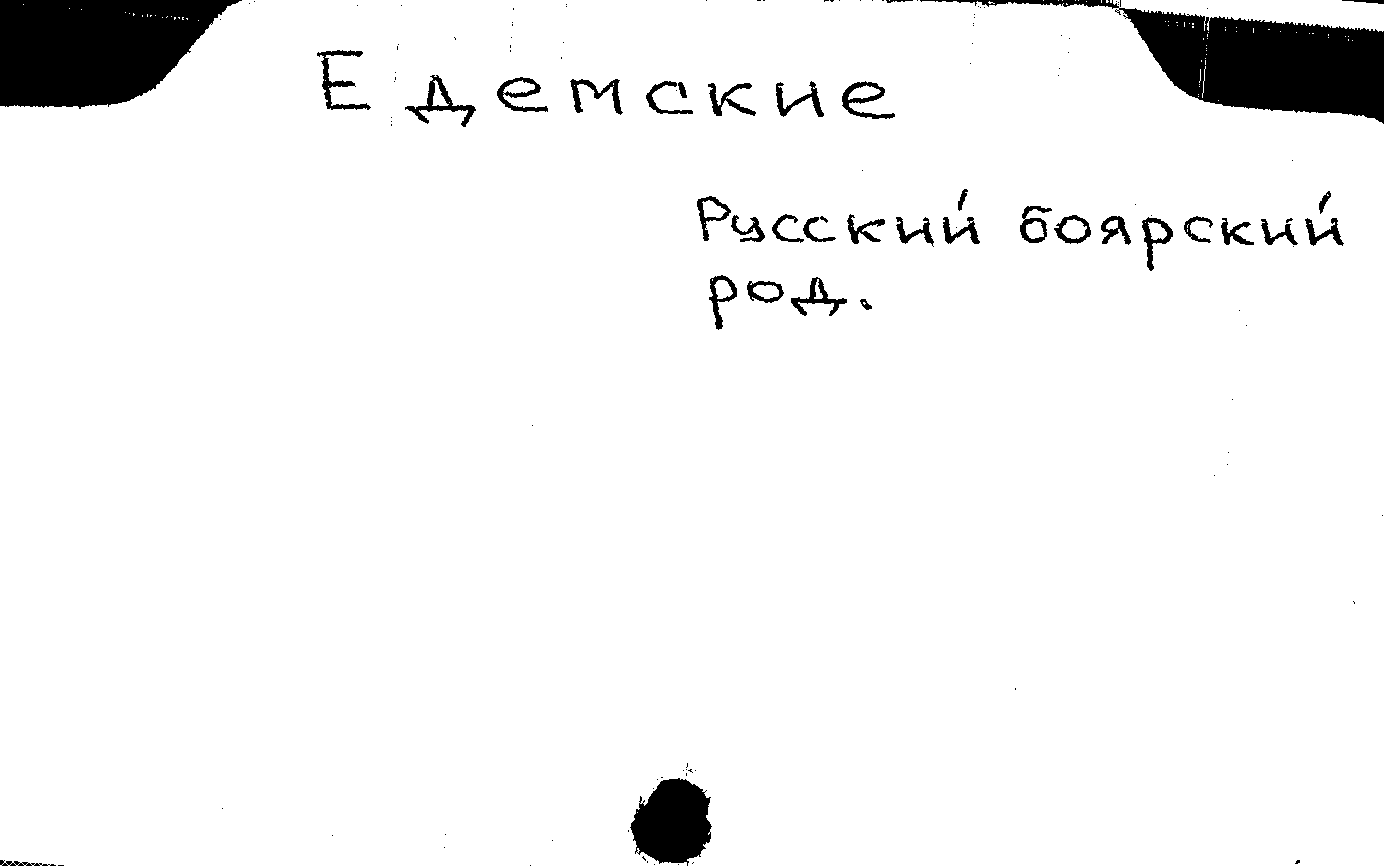 Едемские
Русский боярский
род.